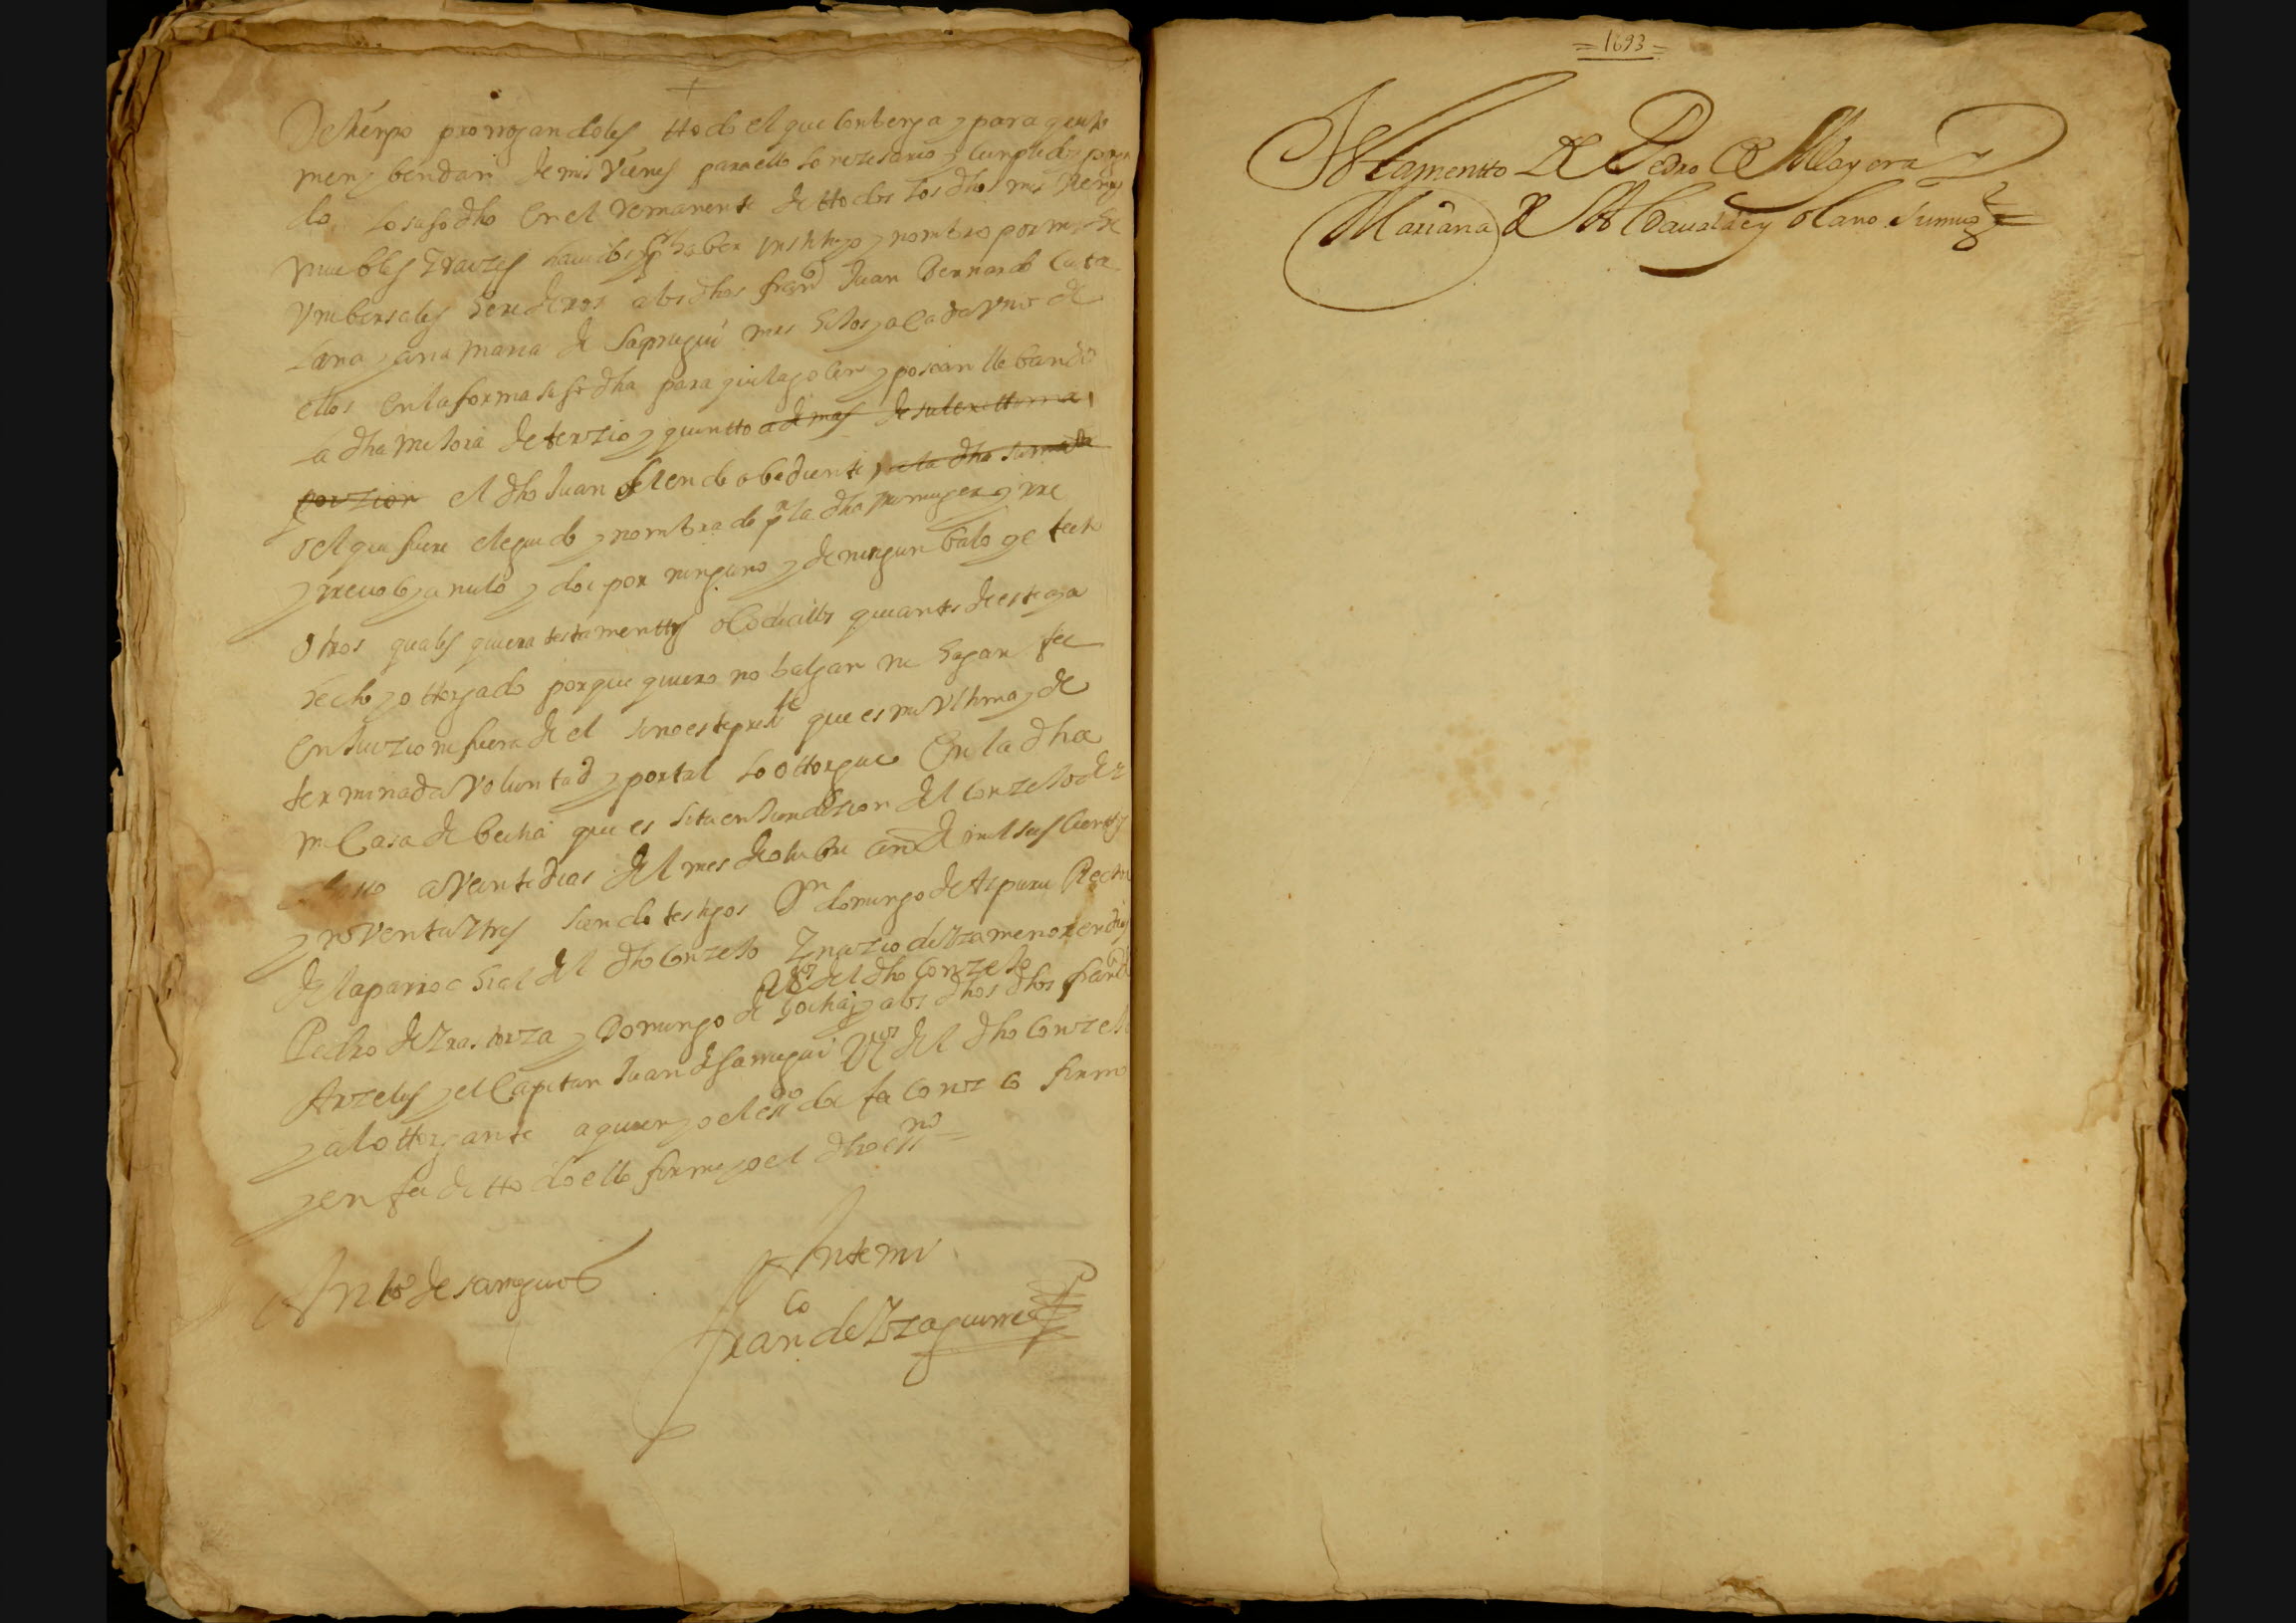 +
De tienpo prorrogandoles ttodo el que conbenga y para que to
men y bendan de mis vienes para ello lo nezesario y cunplido y paga
do lo suso dho en el remanente de ttodos los dhos mis vienes
muebles y raizes hauidos y por haber instituyo y nombro por mis he
vnibersales herederos a los dhos franco Juan Bernardo Cata
lina y ana maria de mis hijos y a cada vno de
ellos en la forma suso dha para que la gozen y posean llebando
la dha mejora de terzio y quintto ademas de su lexittima
porzion el dho Juan siendo obediente a la dha su madre
o el que fuere eleguido y nombrado pr la dha mi muger y rre
y rreuoco y anulo y doi por ninguno y de ningun balor y efecto
otros quales quiera testamenttos o Codicillos que antes de este aya
hecho y ottorgado porque quiero no balgan ni hagan fee
en Juizio ni fuera de el sino este preste que es mi vltima y de
terminada voluntad y por tal lo ottorgue en la dha
mi Casa de que es sita en Juridizion del Conzejo de
a veinte dias del mes de otubre año de mil seis cientos
y noventa y tres siendo testigos Dn domingo de Rector
de la parrochial del dho Conzejo Ynazio de menor en dias
Pedro de y Domingo de vos del dho Conzejo y a los dhos dhos franco
y el Capitan Juan de vos del dho Conzejo
y al ottorgante a quien yo el esno doi fee conozco firmo
y en fee de ttodo ello firme yo el dho esno =
Anto de
Ante mi
Franco de Yzaguirre
= 1693 =
Testamentto de Pedro de Mayora y
Mariana de y olano su muger